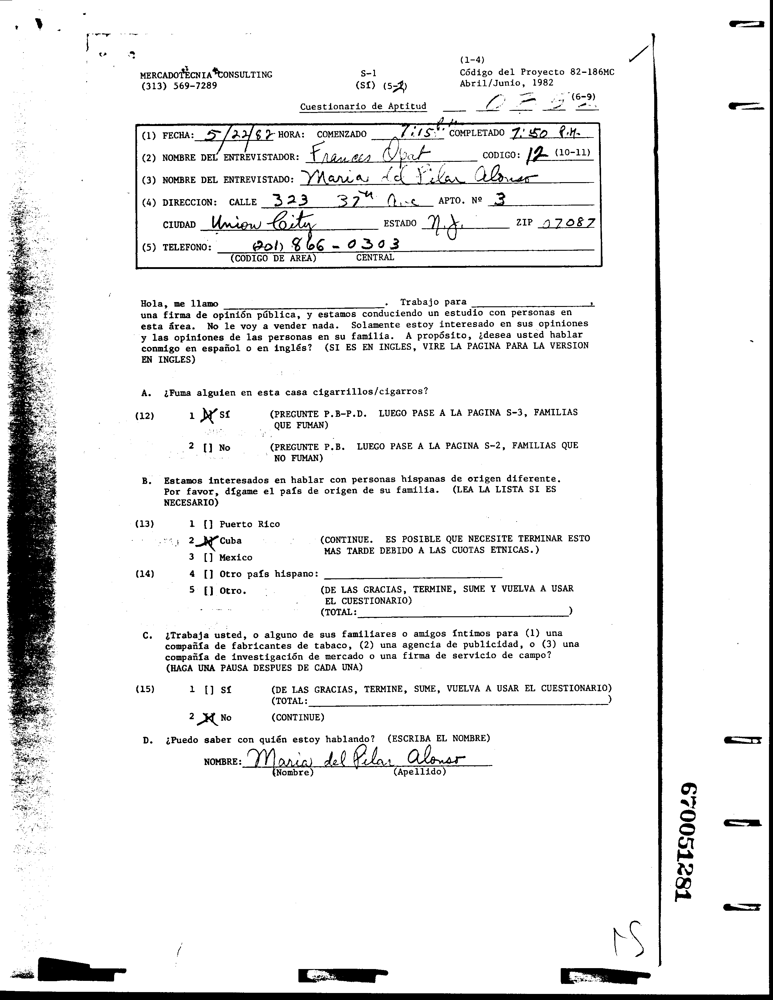 (1-4)
MERCADOTECNIA CONSULTING S-1 Código del Proyecto 82-186MC
(313) 569-7289 (SI) (5-2) Abril/Junio, 1982
Cuestionario de Aptitud (6-9)
(1) FECHA: 5/22/82 HORA: COMENZADO 7:15 P.M. COMPLETADO 7:50 P.M.
(2) NOMBRE DEL ENTREVISTADOR: Frances CODIGO: 12 (10-11)
(3) NOMBRE DEL ENTREVISTADO: Maria del Pilar Alonso
(4) DIRECCION: CALLE 323 37th Ave APTO. Nº 3
CIUDAD Union City ESTADO N.J. ZIP 07087
(5) TELEFONO: (201) 866-0303
(CODIGO DE AREA) CENTRAL
Hola, me llamo . Trabajo para ,
una firma de opinión pública, y estamos conduciendo un estudio con personas en
esta área. No le voy a vender nada. Solamente estoy interesado en sus opiniones
y las opiniones de las personas en su familia. A propósito, ¿desea usted hablar
conmigo en español o en inglés? (SI ES EN INGLES, VIRE LA PAGINA PARA LA VERSION
EN INGLES)
A. ¿Fuma alguien en esta casa cigarrillos/cigarros?
(12) 1 [X] Sí (PREGUNTE P.B-P.D. LUEGO PASE A LA PAGINA S-3, FAMILIAS
QUE FUMAN)
2 [] No (PREGUNTE P.B. LUEGO PASE A LA PAGINA S-2, FAMILIAS QUE
NO FUMAN)
B. Estamos interesados en hablar con personas hispanas de origen diferente.
Por favor, dígame el país de origen de su familia. (LEA LA LISTA SI ES
NECESARIO)
(13) 1 [] Puerto Rico
2 [X] Cuba (CONTINUE. ES POSIBLE QUE NECESITE TERMINAR ESTO
3 [] Mexico MAS TARDE DEBIDO A LAS CUOTAS ETNICAS.)
(14) 4 [] Otro país hispano:
5 [] Otro. (DE LAS GRACIAS, TERMINE, SUME Y VUELVA A USAR
EL CUESTIONARIO)
(TOTAL: )
C. ¿Trabaja usted, o alguno de sus familiares o amigos íntimos para (1) una
compañía de fabricantes de tabaco, (2) una agencia de publicidad, o (3) una
compañía de investigación de mercado o una firma de servicio de campo?
(HAGA UNA PAUSA DESPUES DE CADA UNA)
(15) 1 [] Sí (DE LAS GRACIAS, TERMINE, SUME, VUELVA A USAR EL CUESTIONARIO)
(TOTAL: )
2 [X] No (CONTINUE)
D. ¿Puedo saber con quién estoy hablando? (ESCRIBA EL NOMBRE)
NOMBRE: Maria del Pilar Alonso
(Nombre) (Apellido)
670051281